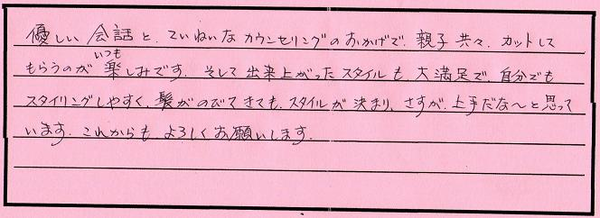 優しい会話と、ていねいなカウンセリングのおかげで、親子共々、カットして
もらうのがいつも楽しみです。そして出来上がったスタイルも大満足で、自分でも
スタイリングしやすく、髪がのびてきても、スタイルが決まり、さすが、上手だな〜と思って
います。これからも、よろしくお願いします。